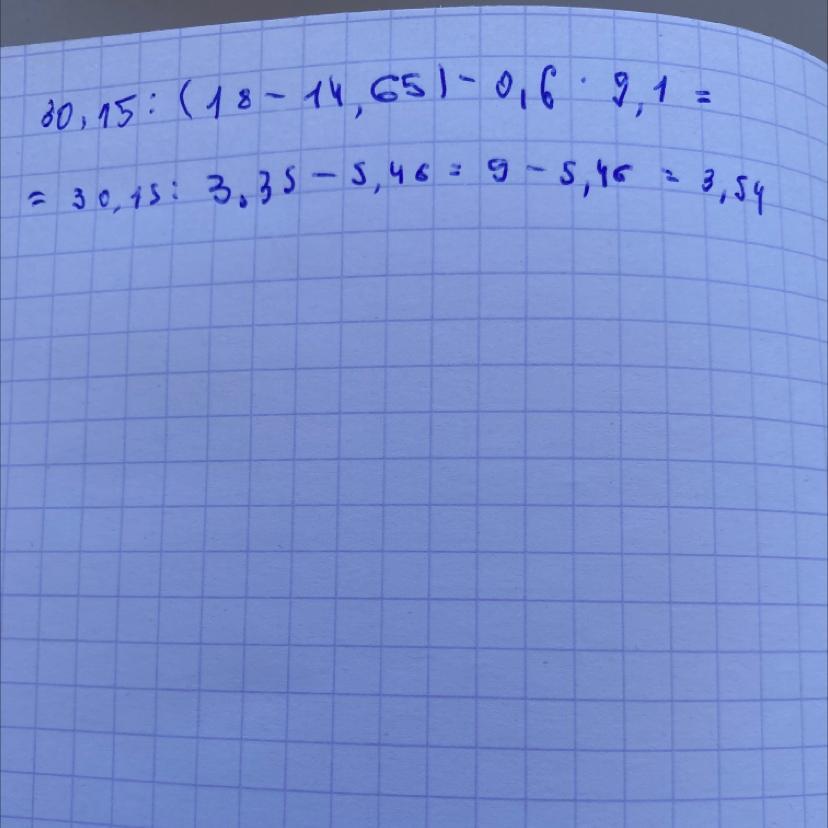 30,15 : (18 - 14,65) - 0,6 · 9,1 =
= 30,15 : 3,35 - 5,46 = 9 - 5,46 = 3,54